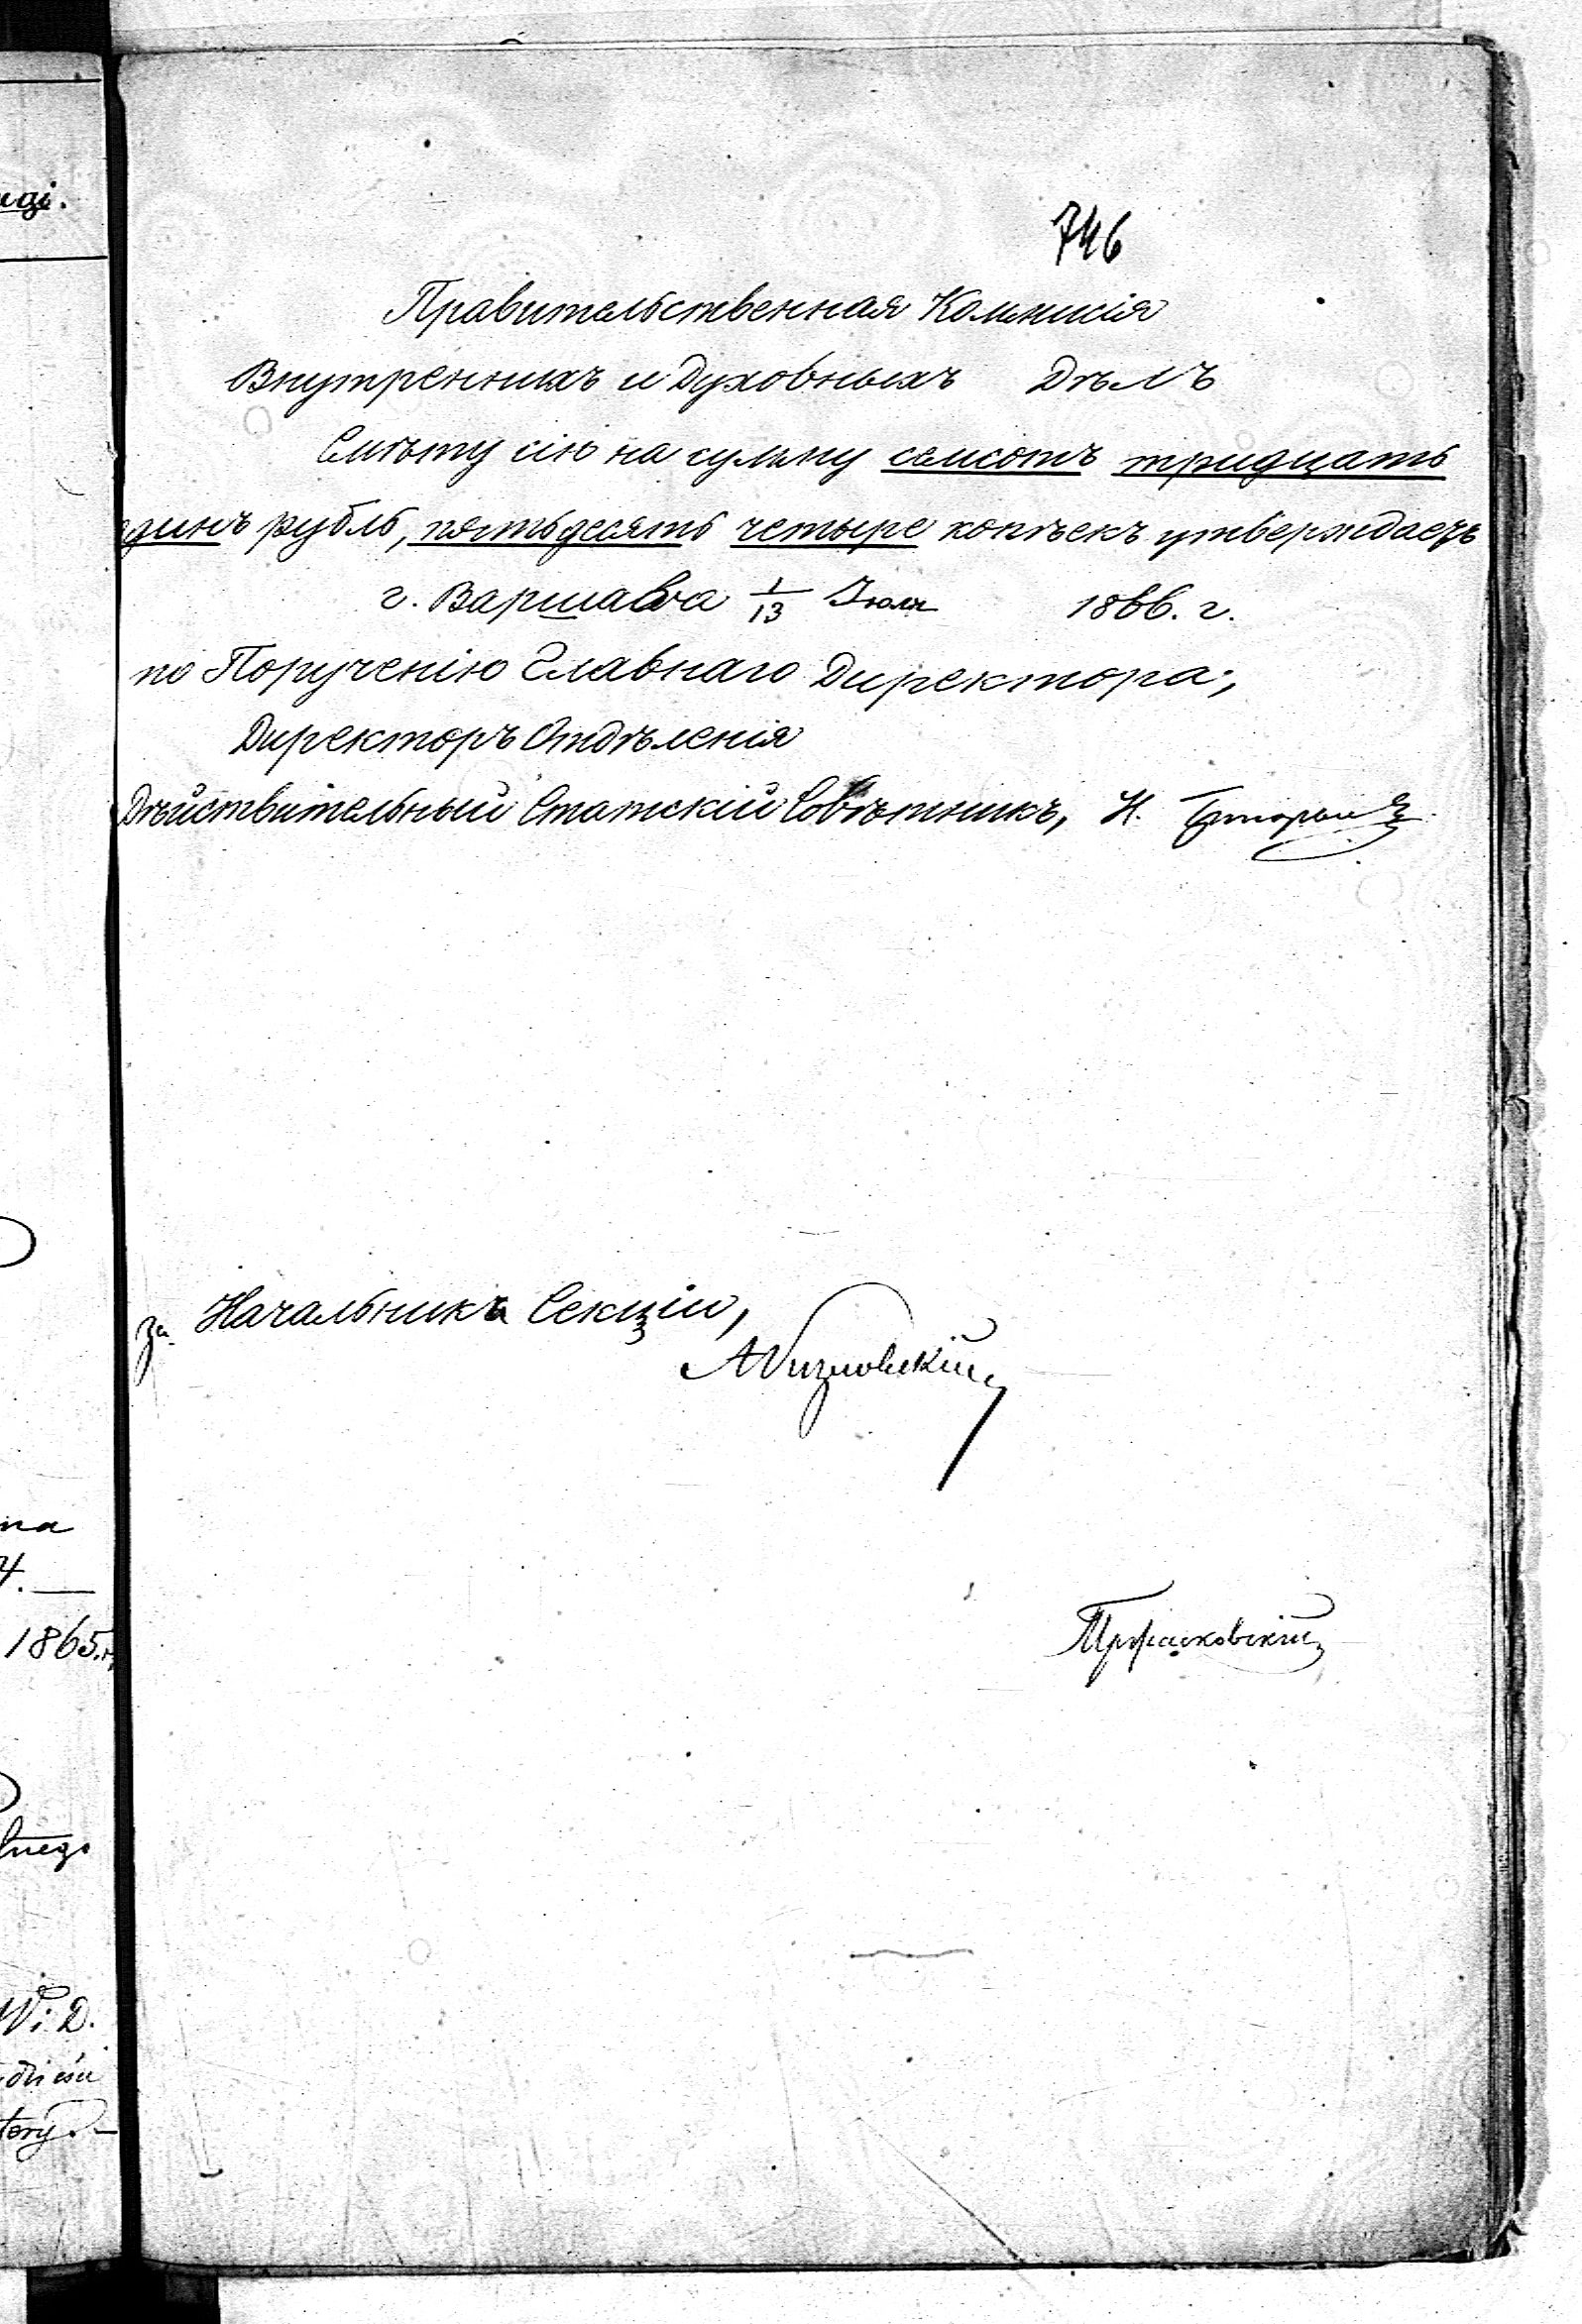 746
Правительственная Коммисія
Внутреннихъ и Духовныхъ Дѣлъ
Смѣту сію на сумму семсотъ тридцать
одинъ рубль, пятьдесятъ четыре копѣекъ утверждаетъ
г. Варшава 1/13 Іюля 1866. г.
по Порученію Главнаго Директора,
Директоръ Отдѣленія
Дѣйствительный Статскій Совѣтникъ, Н.
за Начальника Секціи,
1865.
W. i D.